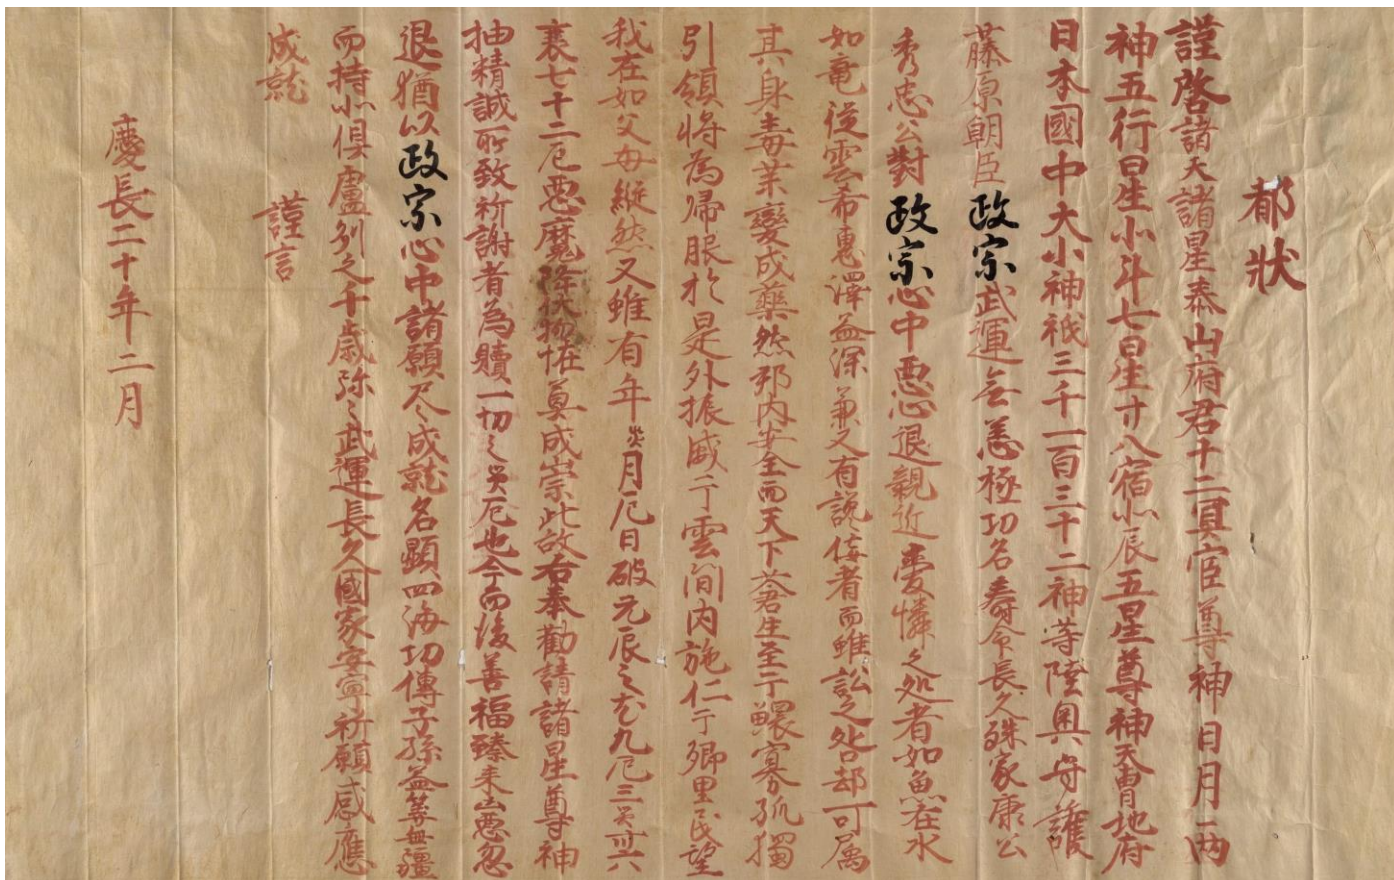 都状
謹啓諸天諸星泰山府君十二冥官尊神日月両
神五行曰生北斗七曰生廿八宿北辰五星尊神天曹地府
日本國中大小神祇三千一百三十二神等陸奥守護
藤原朝臣政宗武運無恙極功名寿命長久殊家康公
秀忠公對政宗心中悪心退親近憂憐之処者如魚在水
如竜従雲希恵澤益深兼又有讒侫者而雖訟之咎却可属
其身毒業變成薬然邦内安全而天下蒼生至于鰥寡孤獨
引領将為帰服於是外振威于雲間内施仁于郷里民望
我在如父母縦然又雖有年災月厄日破元辰之九厄三災六
衰七十二厄悪魔降伏物恠莫成祟此故右奉勸請諸星尊神
抽精誠所致祈謝者為贖一切之災厄也今而後善福臻来凶悪忽
退猶以政宗心中諸願尽成就名顕四海功傳子孫益筭無彊
而持北倶盧列之千歳弥々武運長久國家安寧祈願感應
成就 謹言
慶長二十年二月